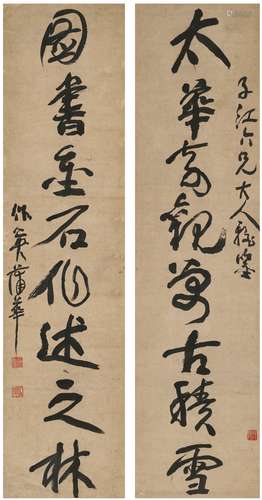 太華奇觀萬古積雪
子江六兄大人雅鑒
圖書金石作述之林
作英蒲華